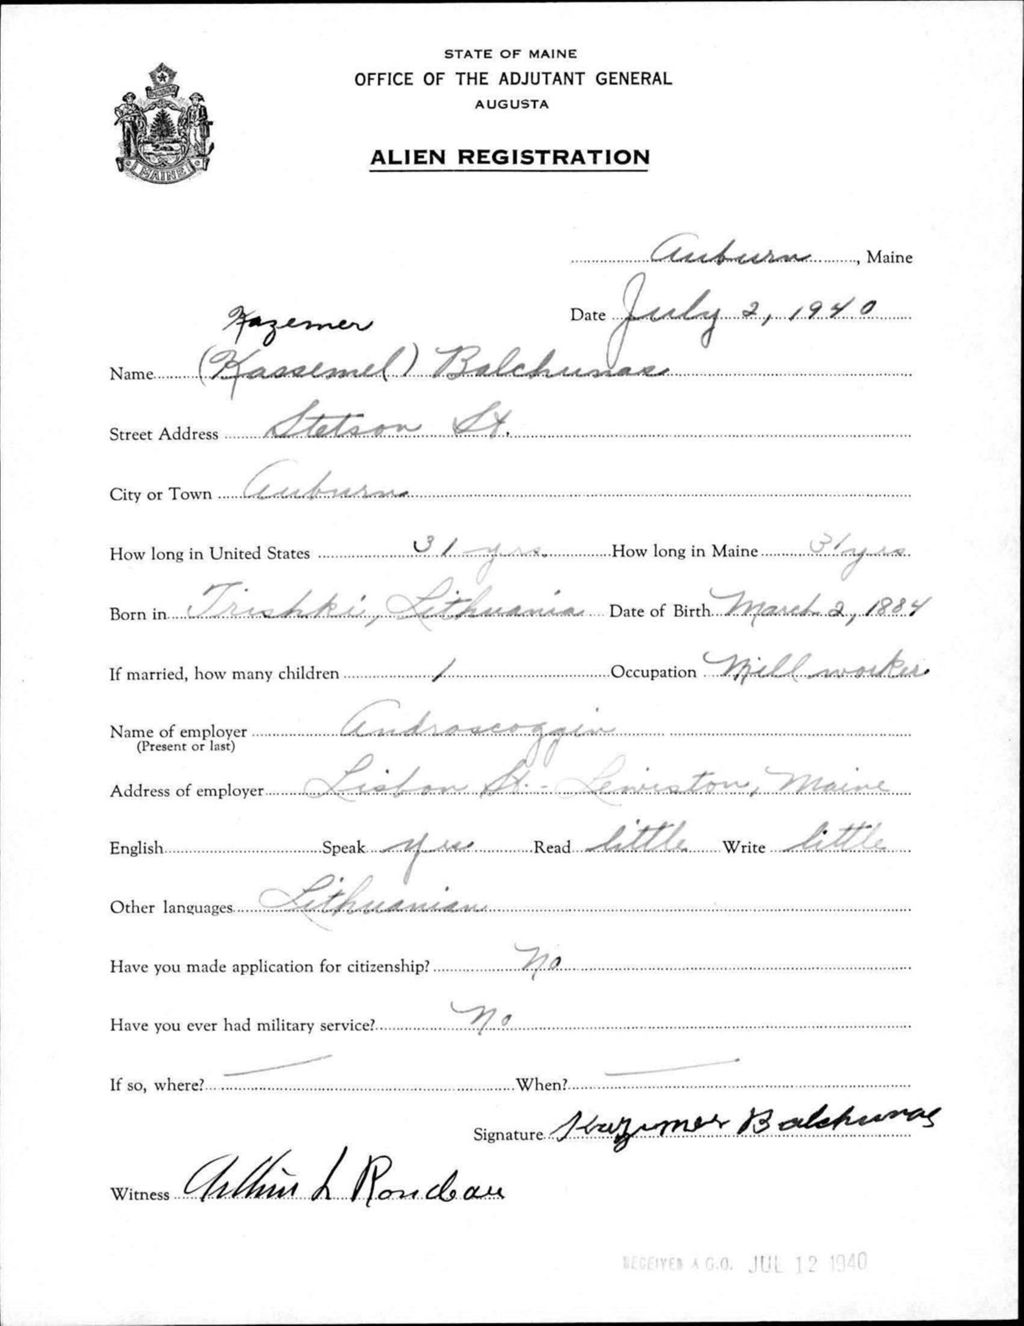 STATE OF MAINE
OFFICE OF THE ADJUTANT GENERAL
AUGUSTA
ALIEN REGISTRATION
MAINE
Auburn, Maine
Date July 2, 1940
Kazemer
Name (Kassemel) Balchunas
Street Address Stetson St.
City or Town Auburn
How long in United States 31 yrs. How long in Maine 31 yrs
Born in Trishki, Lithuania Date of Birth March 2, 1884
If married, how many children 1 Occupation Mill worker
Name of employer Androscoggin
(Present or last)
Address of employer Lisbon St. - Lewiston, Maine
English Speak yes Read little Write little
Other languages Lithuanian
Have you made application for citizenship? No
Have you ever had military service? No
If so, where? — When? —
Signature Kazymer Balchunas
Witness Arthur L Rondeau
RECEIVED A.G.O. JUL 12 1940